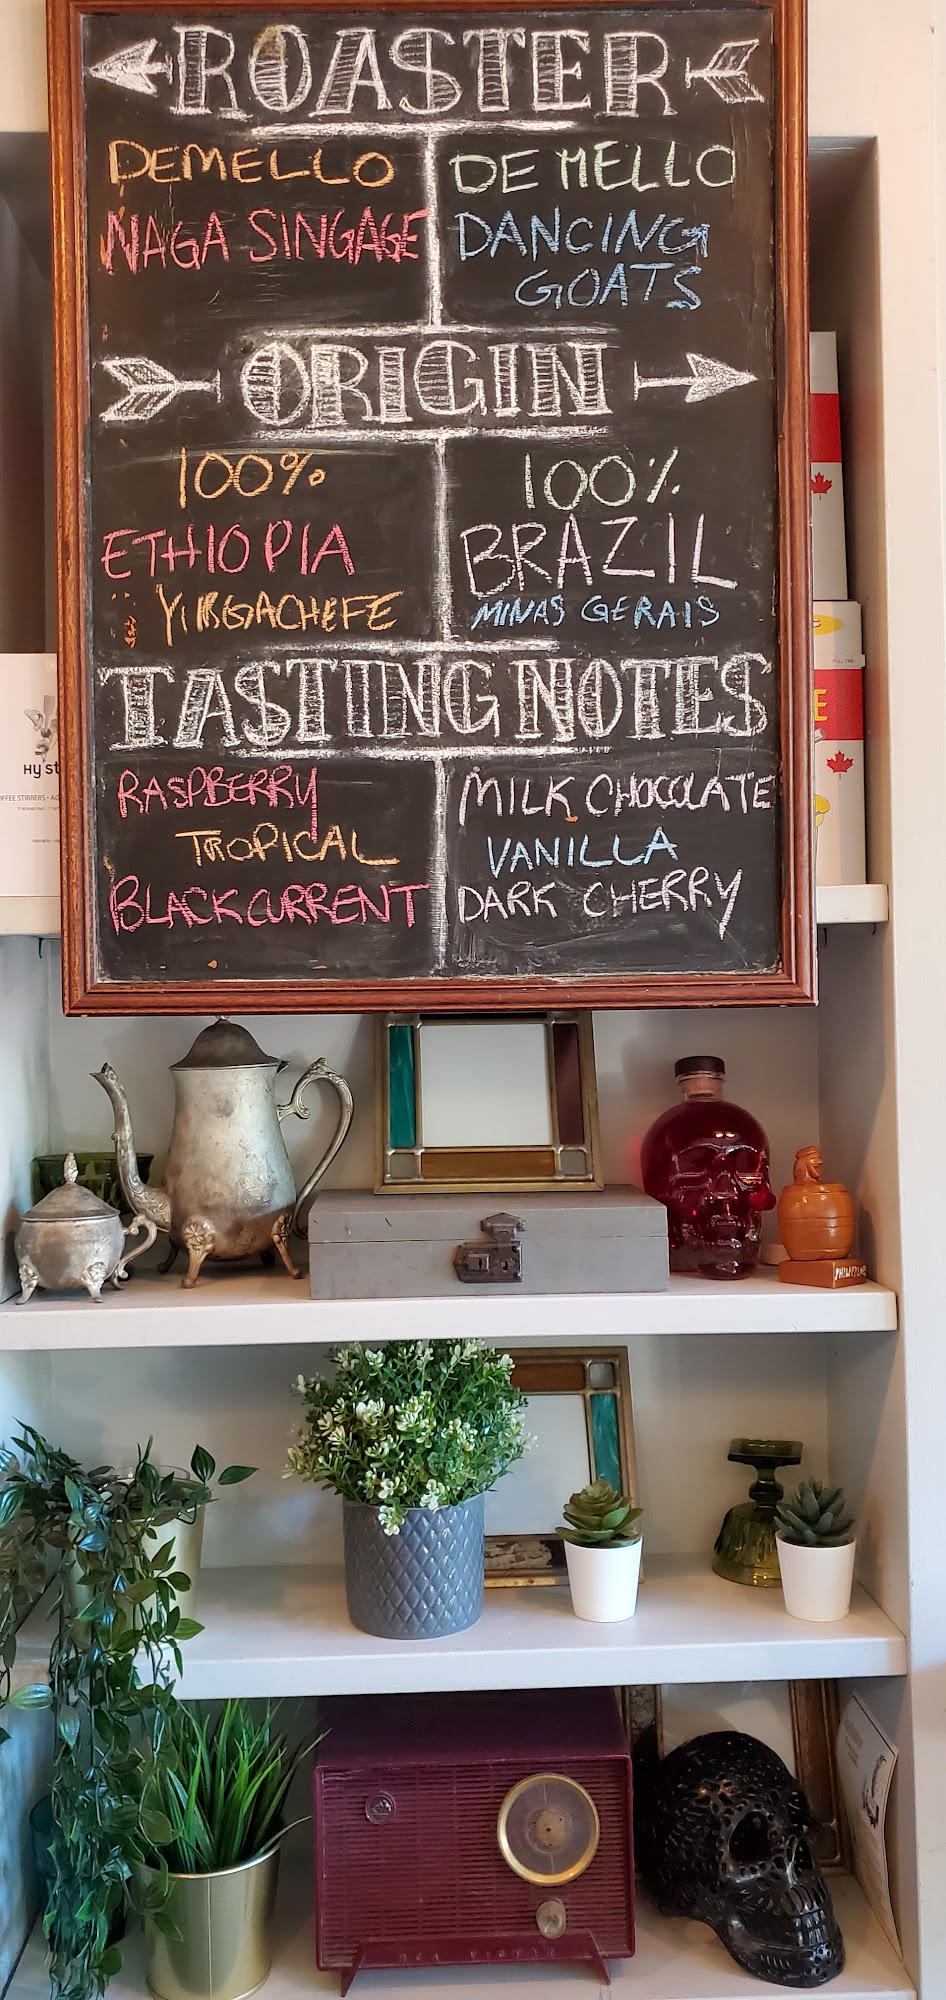 ROASTER
DEMELLO
NAGA SINGAGE
DE MELLO
DANCING
GOATS
ORIGIN
100%
ETHIOPIA
YIRGACHEFE
100%
BRAZIL
MINAS GERAIS
TASTING NOTES
RASPBERRY
TROPICAL
BLACKCURRENT
MILK CHOCOLATE
VANILLA
DARK CHERRY
PULL TAB
E
HY ST
OFFEE STIRRERS
RCA VICTOR